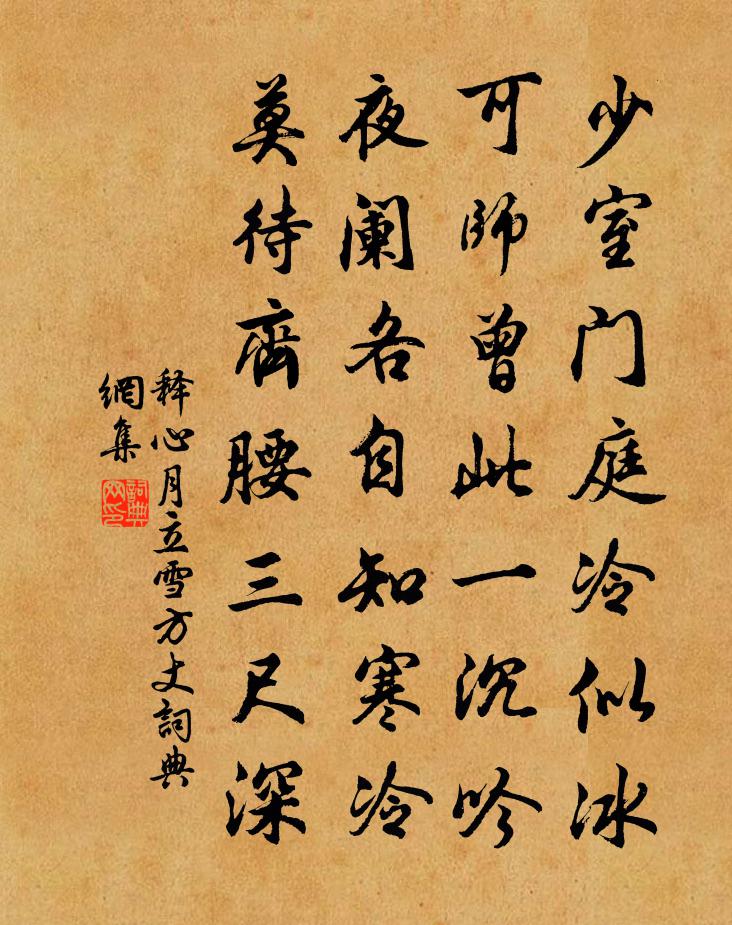 少室门庭冷似冰
可师曾此一沉吟
夜阑各自知寒冷
莫待齊腰三尺深
释心月立雪方丈詞典
網集
詞典
网印